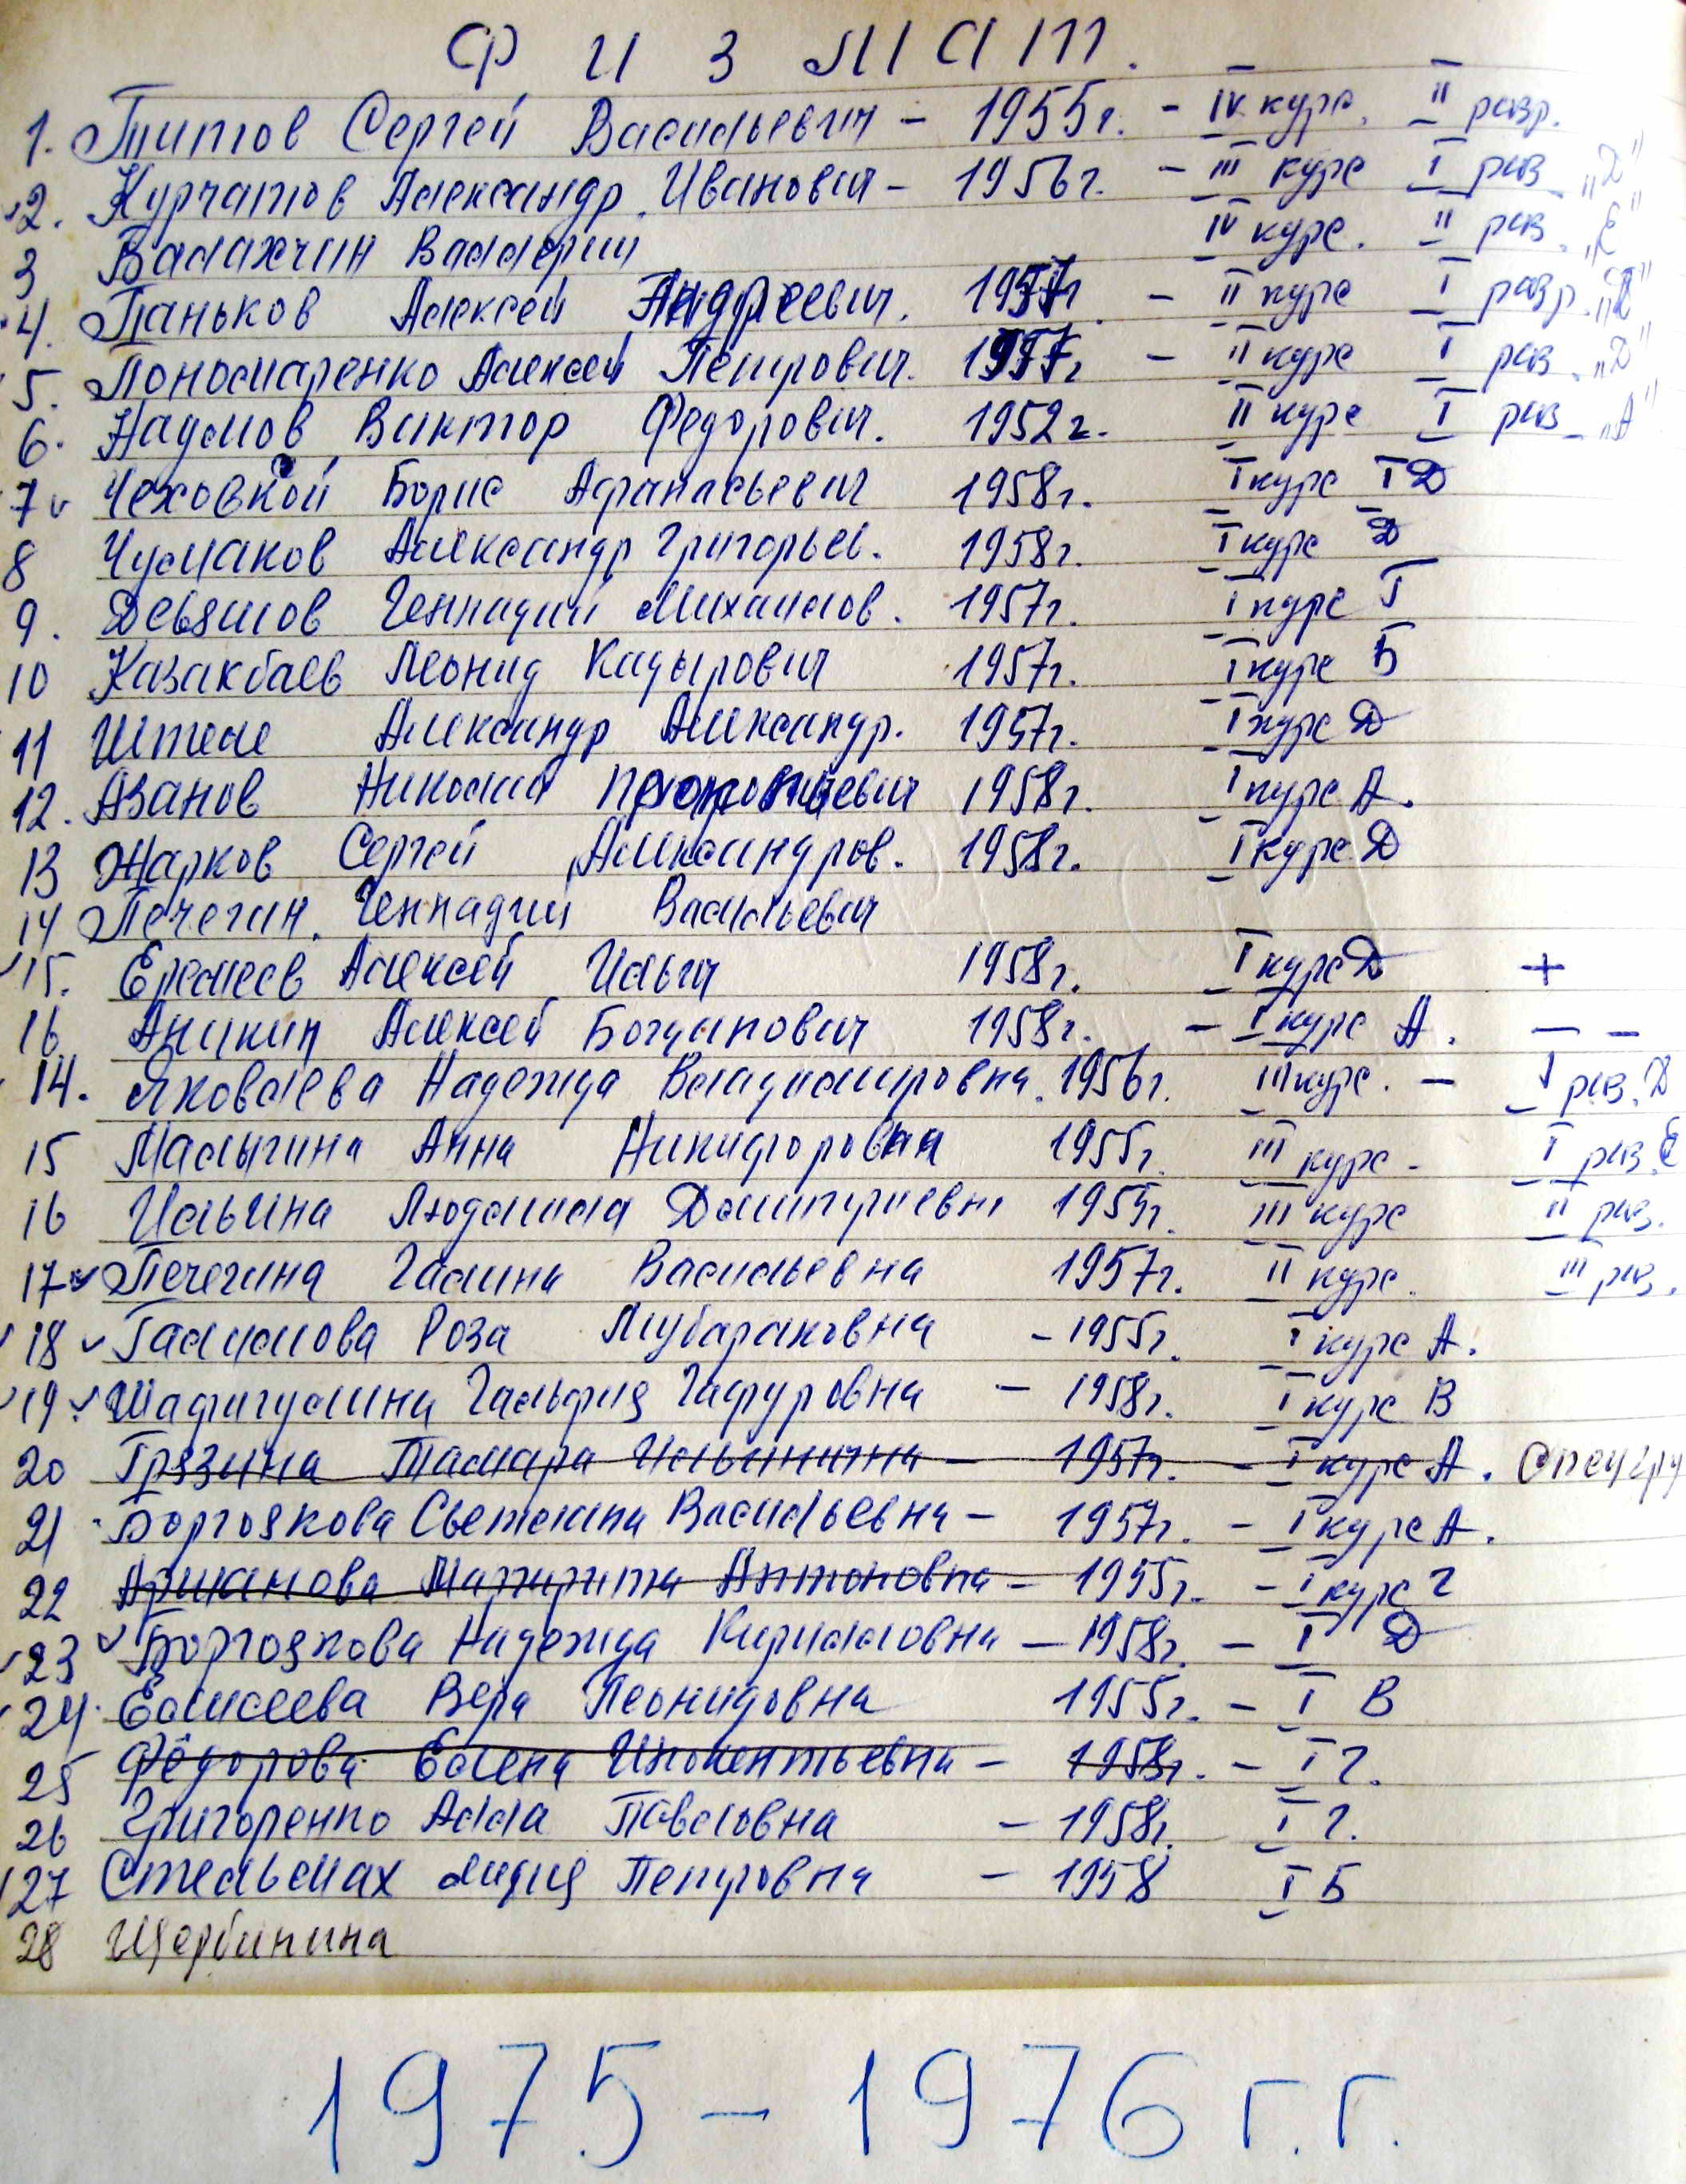 ФИЗМАТ.
1. Титов Сергей Васильевич – 1955г. – IV курс, II разр.
2. Курчатов Александр Иванович – 1956г. – III курс I раз „Д"
3 Валерий IV курс. II раз.
4. Паньков Алексей Андреевич. 1957г – II курс I разр. „Д"
5. Пономаренко Алексей Петрович. 1957г – II курс I раз. „Д"
6. Наумов Виктор Федорович. 1952г. II курс I раз – „А"
7 Чеховской Борис Афанасьевич 1958г. I курс I Д
8 Чумаков Александр Григорьев. 1958г. I курс Д
9. Девяшов Геннадий Михайлов. 1957г. I курс Г
10 Казакбаев Леонид Кадырович 1957г. I курс Б
11 Штеле Александр Александр. 1957г. I курс Д
12. Азанов Николай 1958г. I курс А.
13 Жарков Сергей Александров. 1958г. I курс Д
14 Печегин. Геннадий Васильевич
15. Еремеев Алексей Ильич 1958г. I курс Д +
16 Аникин Алексей Богданович 1958г. – I курс А. – –
14. Яковлева Надежда Владимировна. 1956г. III курс. – I раз. Д
15 Малыгина Анна Никифоровна 1955г. III курс – I раз. Е
16 Ильина Людмила Дмитриевн 1955г. III курс II раз.
17 Печегина Галина Васильевна 1957г. II курс. III раз.
18 Галимова Роза Мубараковна – 1955г. I курс А.
19. Шафигулина Гальфия Гафуровна – 1958г. I курс В
20 Грязина Тамара Ильинична – 1957г. – I курс А. Спецгру
21 Боргоякова Светлана Васильевна – 1957г. – I курс А.
22 Аршанова Маргарита Антоновна – 1955г. – I курс Г
23 Боргоякова Надежда Кирилловна – 1958г. – I Д
24. Елисеева Вера Леонидовна 1955г. – I В
25 Фёдорова Елена Инокентьевна – 1958г. – I Г.
26 Григоренко Алла Павловна – 1958г. I Г.
27 Стельмах Лидия Петровна – 1958 I Б
28 Щербинина
1975 – 1976 г.г.